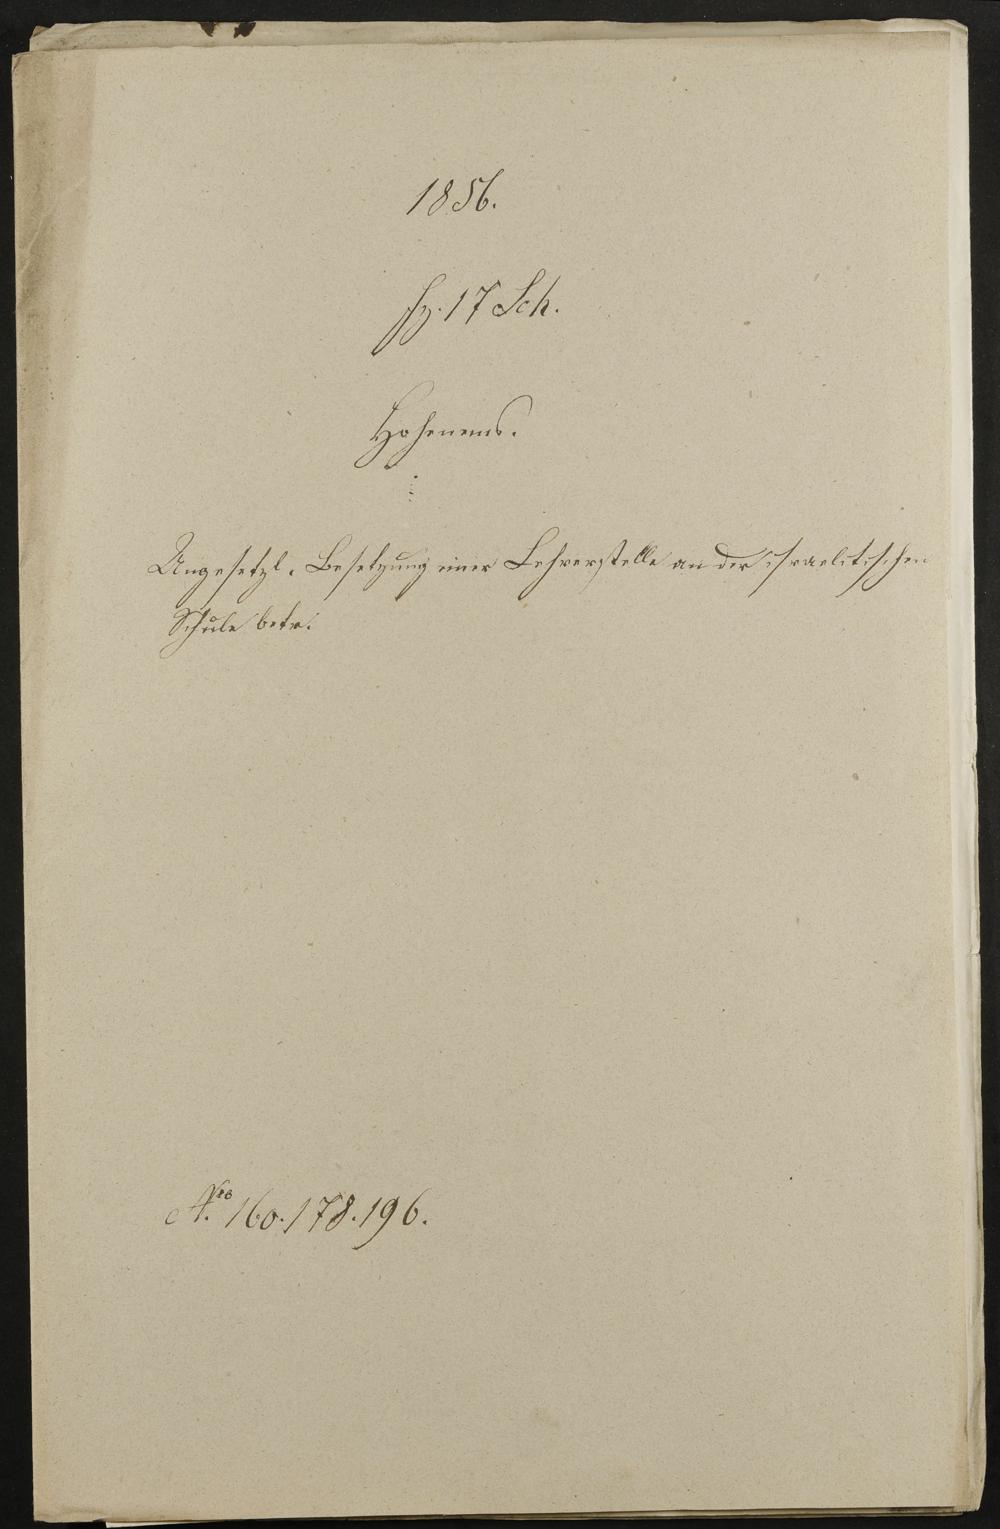 1856.
fz. 17 Sch.
Hohenems.
Ungesetzl. Besetzung einer Lehrerstelle an der israelitischen
Schule betr.
No. 160. 178. 196.